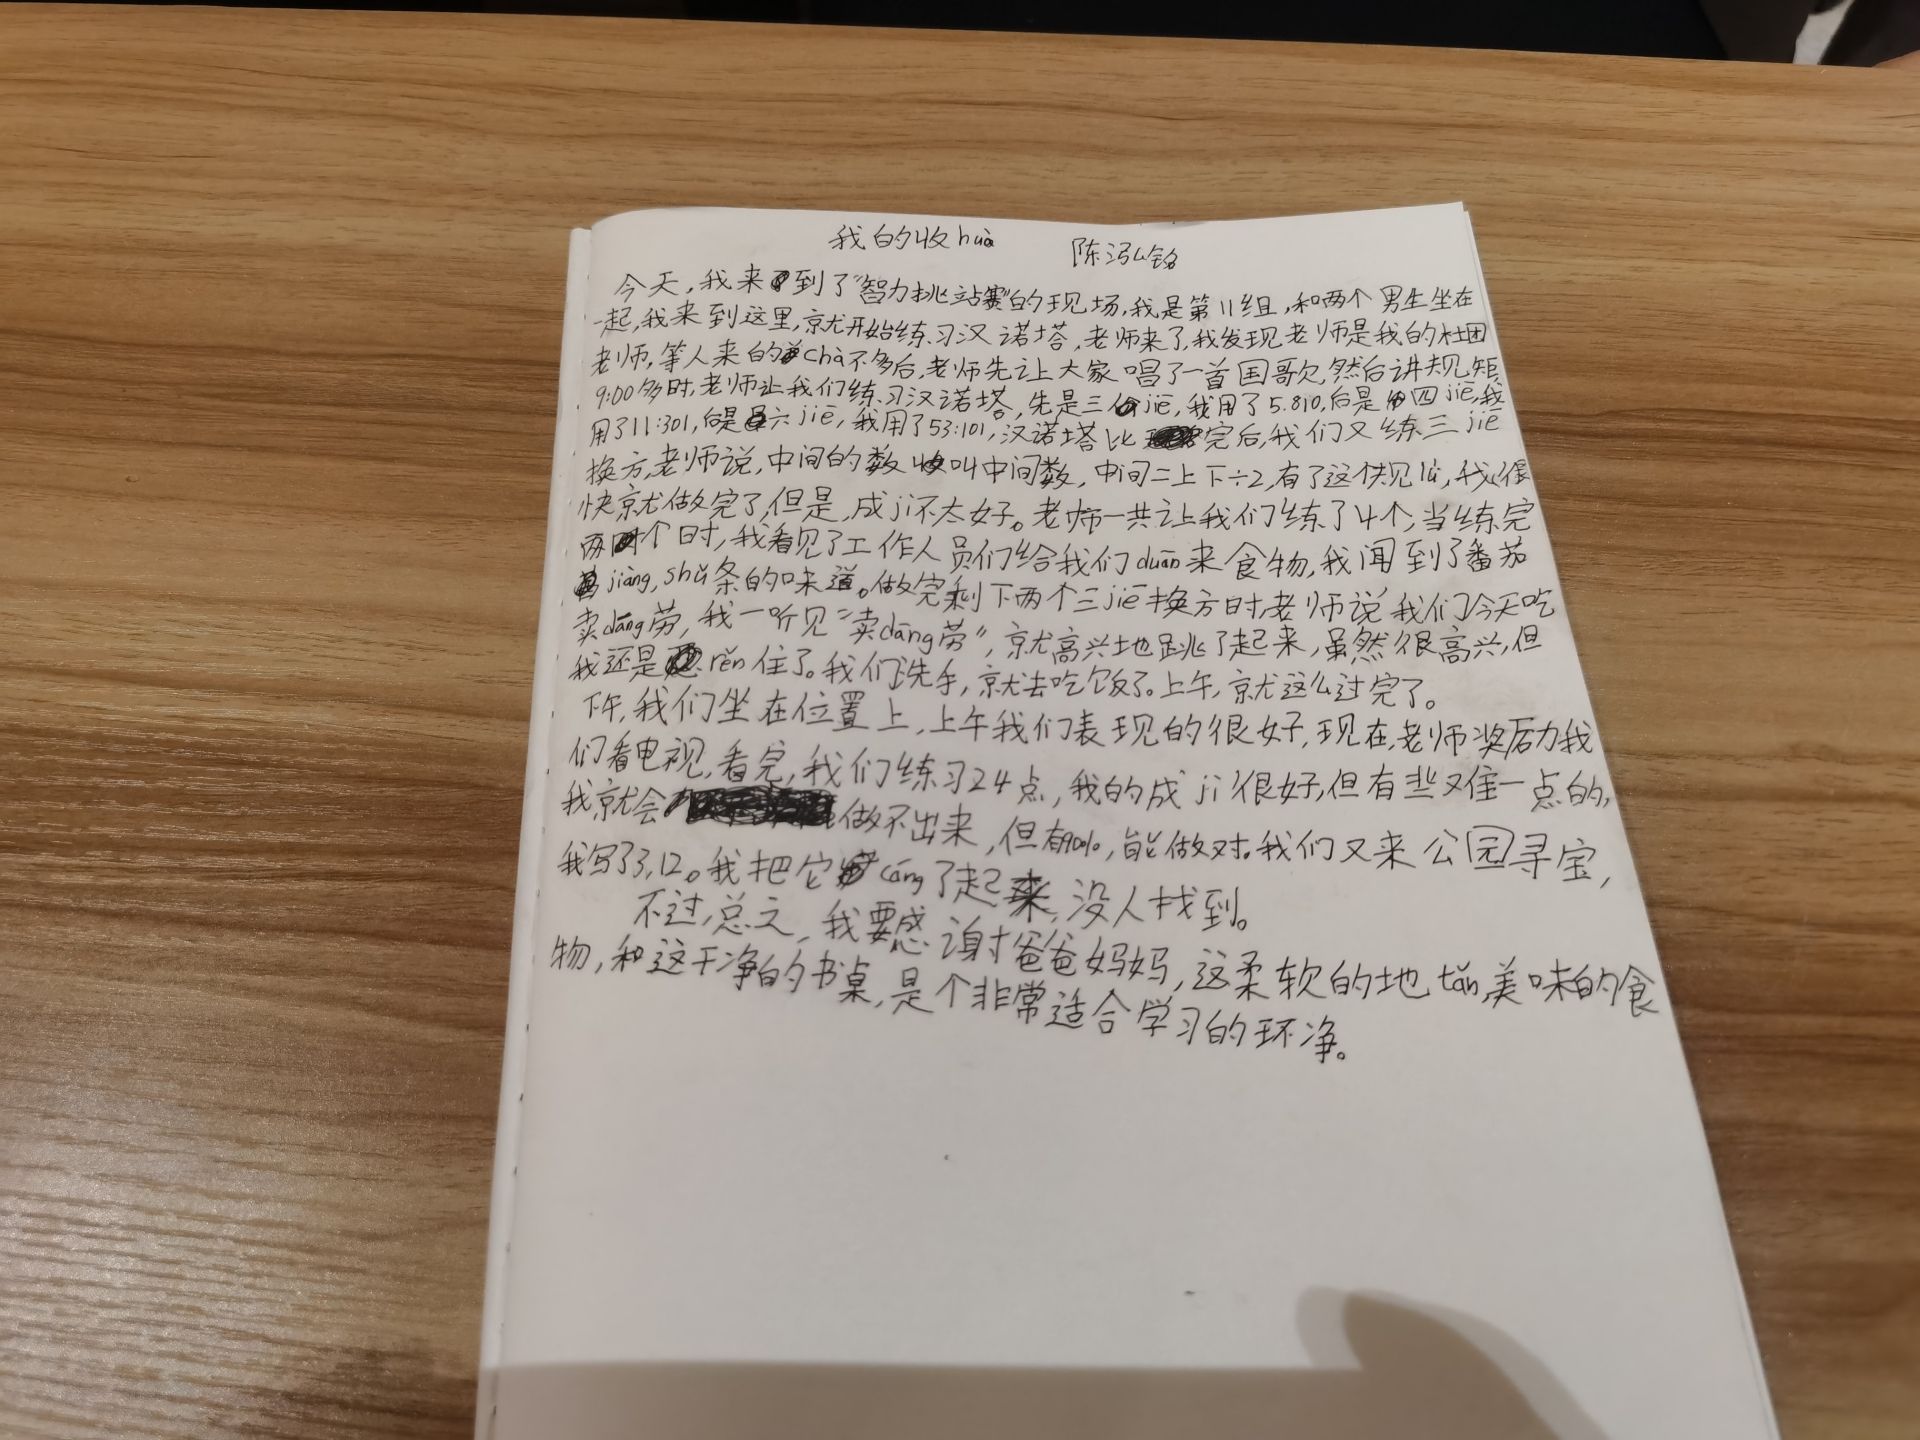 我的收huò 陈泓铭
今天,我来到了“智力挑站赛”的现场,我是第11组,和两个男生坐在
一起,我来到这里,就开始练习汉诺塔,老师来了,我发现老师是我的社团
老师,等人来的chà不多后,老师先让大家唱了一首国歌,然后讲规矩,
9:00多时,老师让我们练习汉诺塔,先是三jiē,我用了5.810,后是四jiē,我
用了11:301,后是六jiē,我用了53:101,汉诺塔比完后,我们又练三jiē
换方,老师说,中间的数叫中间数,中间=上下÷2,有了这个规lù,我很
快就做完了,但是,成jì不太好。老师一共让我们练了4个,当练完
两个时,我看见了工作人员们给我们duān来食物,我闻到了番茄
jiàng,shǔ条的味道。做完剩下两个三jiē换方时,老师说我们今天吃
卖dāng劳,我一听见“卖dāng劳”,就高兴地跳了起来,虽然很高兴,但
我还是rěn住了。我们洗手,就去吃饭了。上午,就这么过完了。
下午,我们坐在位置上,上午我们表现的很好,现在,老师奖励我
们看电视,看完,我们练习24点,我的成jì很好,但有些又难一点的,
我就会做不出来,但有90%,能做对。我们又来公园寻宝,
我写了3,12。我把它cáng了起来,没人找到。
不过,总之,我要感谢爸爸妈妈,这柔软的地tǎn,美味的食
物,和这干净的书桌,是个非常适合学习的环净。